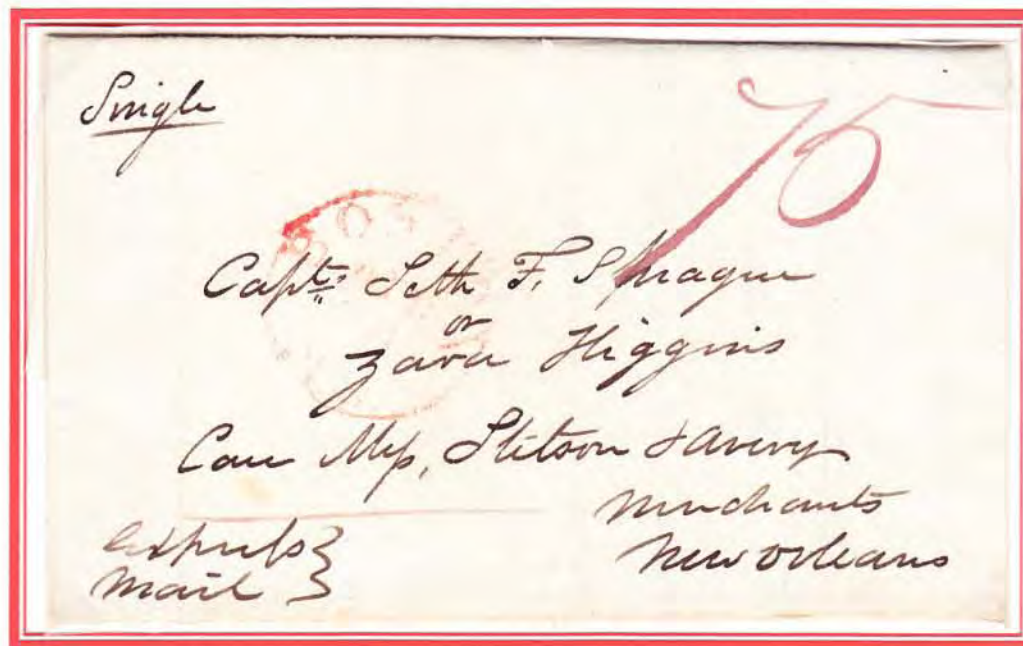 Single
75
BOS
Capt: Seth F. Sprague
or
Zara Higgins
Care Mess, Stetson & Avery
Merchants
New Orleans
Express
Mail